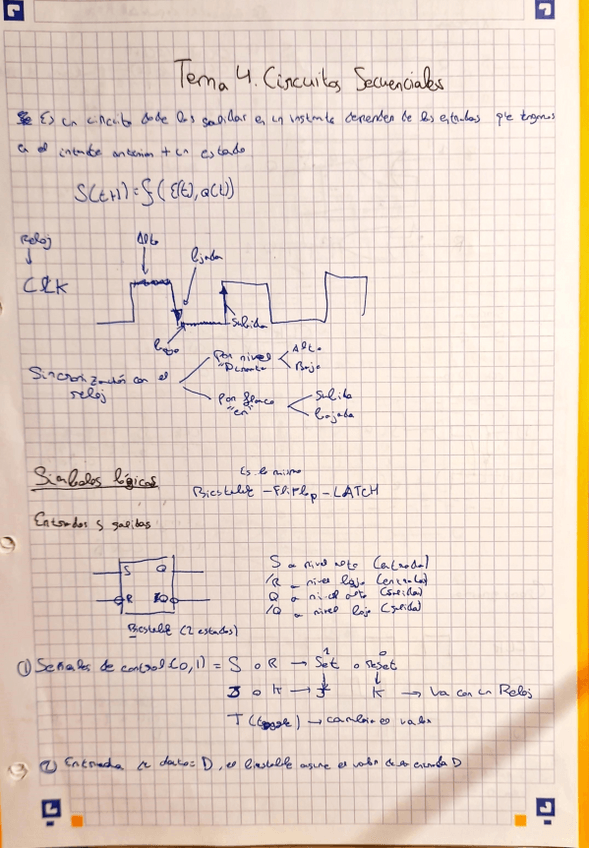 Tema 4. Circuitos Secuenciales
Es un circuito dode las salidas en un instante dependen de las entradas que tengamos
en el instante anterior + un estado
S(t+1) = f(E(t), Q(t))
Reloj
Alto
Bajada
CLK
Subida
Bajo
Sincronización con el
reloj
Por nivel
"Durante"
Alto
Bajo
Por flanco
"en"
Subida
Bajada
Símbolos lógicos
Es lo mismo
Biestable - FlipFlop - LATCH
Entradas y salidas
S Q
R Q
S a nivel alto (entrada)
/R a nivel bajo (entrada)
Q a nivel alto (salida)
/Q a nivel bajo (salida)
Biestable (2 estados)
1 Señales de control (0,1) = S o R → Set o reset
1 0
J o K → J K → Va con un Reloj
T (toggle) → cambia es valor
2 Entrada de datos = D, el biestable asume el valor de la entrada D